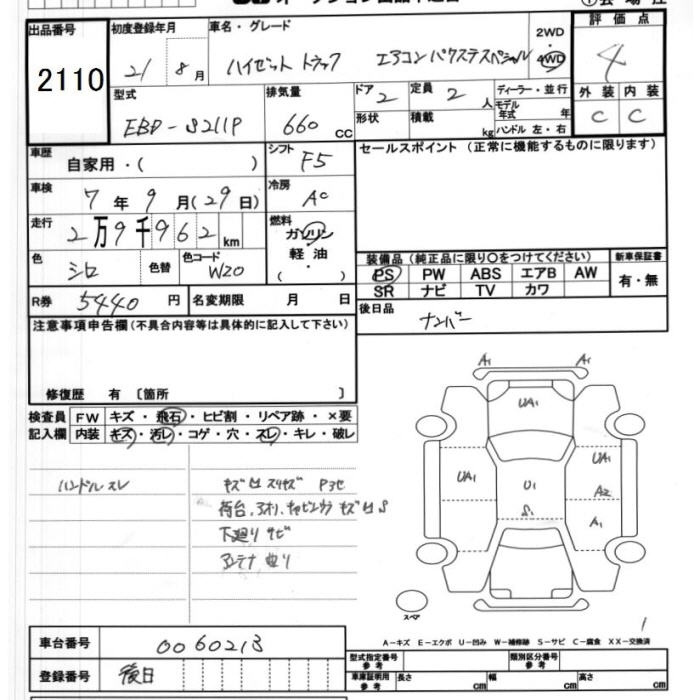 出品番号 初度登録年月 車名・グレード 2WD 評価点
2110 21 8月 ハイゼット トラック エアコン パワステスペシャル 4WD 4
型式 排気量 ドア 2 定員 2 人 ディーラー・並行 外装 内装
EBD-S211P 660 CC 形状 積載 kg モデル年式 年 ハンドル 左・右 C C
車歴 自家用・( ) シフト F5 セールスポイント (正常に機能するものに限ります)
車検 7年9月(29日) 冷房 AC
走行 2万9千962km 燃料 ガソリン
軽油
( ・ )
色 シロ 色替 色コード W20
装備品 (純正品に限り○をつけてください) 新車保証書
PS PW ABS エアB AW 有・無
SR ナビ TV カワ
R券 5440円 名変期限 月 日 後日品 ナンバー
注意事項申告欄(不具合内容等は具体的に記入して下さい)
修復歴 有 〔箇所 〕
検査員 FW キズ・飛石・ヒビ割・リペア跡・×要
記入欄 内装 キズ・汚レ・コゲ・穴・スレ・キレ・破レ
ハンドルスレ キズ凹 スリキズ
荷台、アオリ、キャビンウラ キズ凹 S
下廻り サビ
アンテナ 曲り
A1 A1
UA1
UA1 U1 UA1
A2
S1 A1
スペア
1
A-キズ E-エクボ U-凹み W-補修跡 S-サビ C-腐食 XX-交換済
車台番号 0060213 型式指定番号 参考 類別区分番号 参考
登録番号 後日 車庫証明用 参考 長さ cm 幅 cm 高さ cm